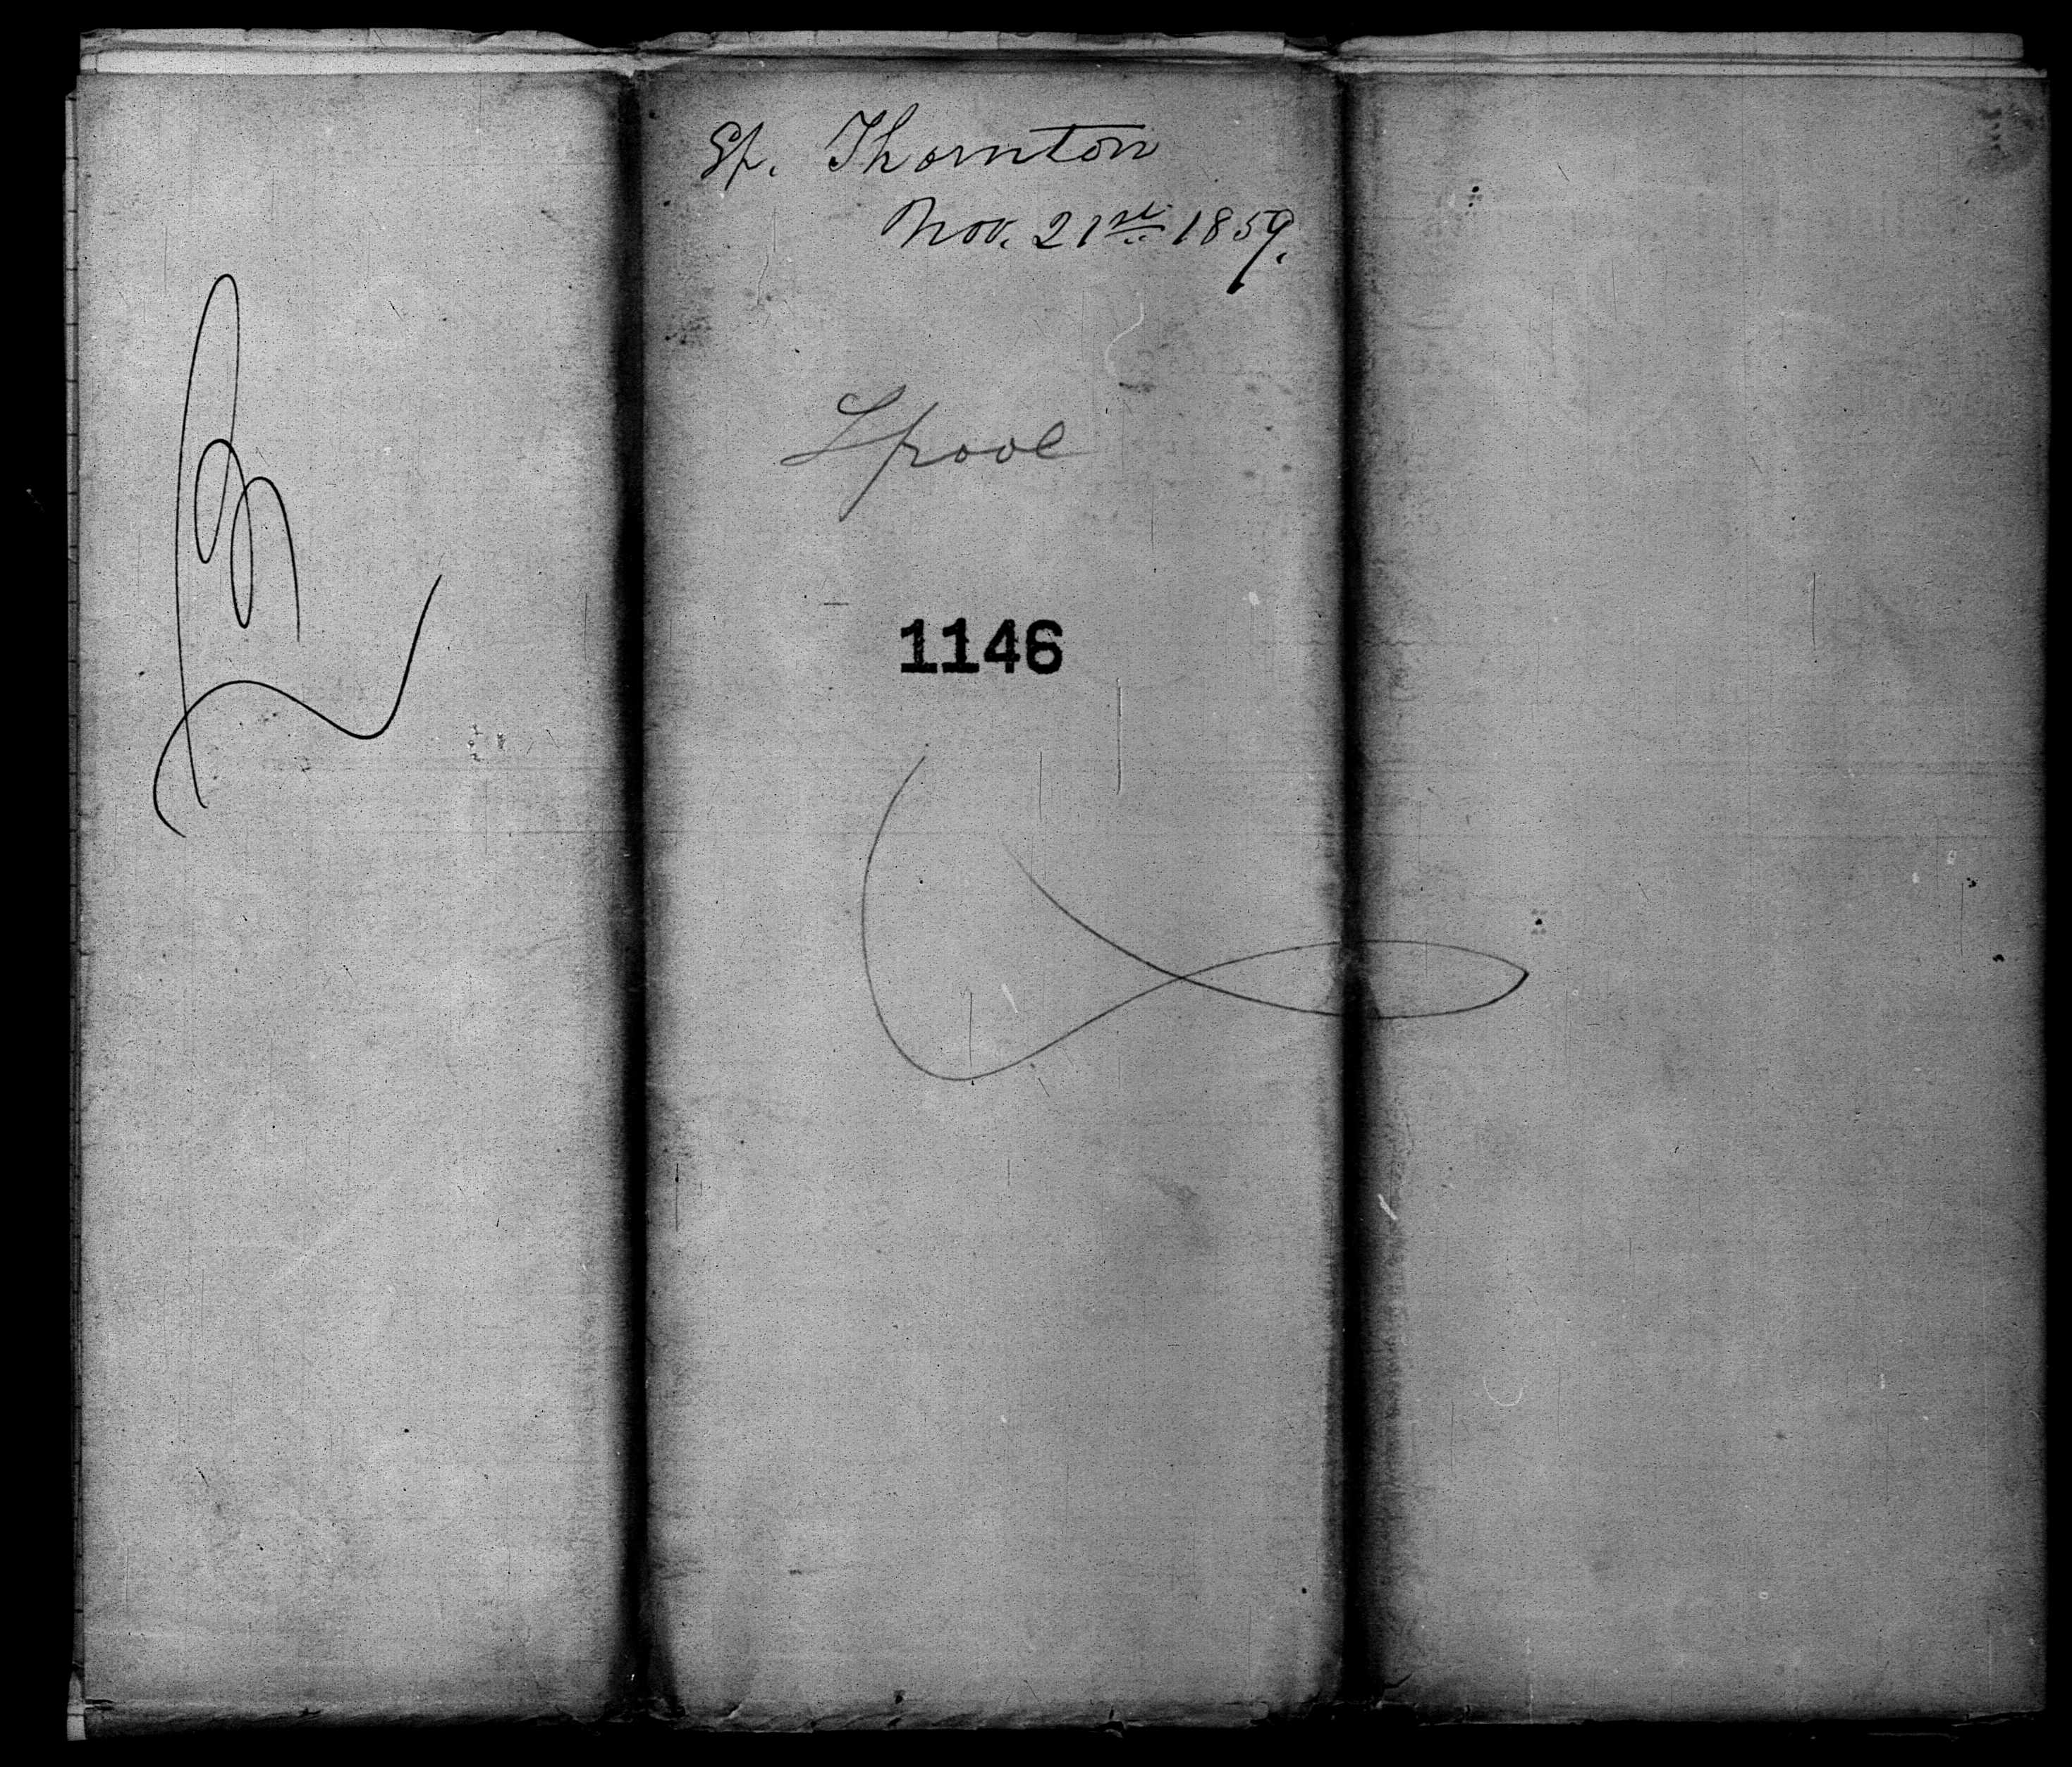 Sp. Thornton
Nov. 21st 1859.
Lpool
1146